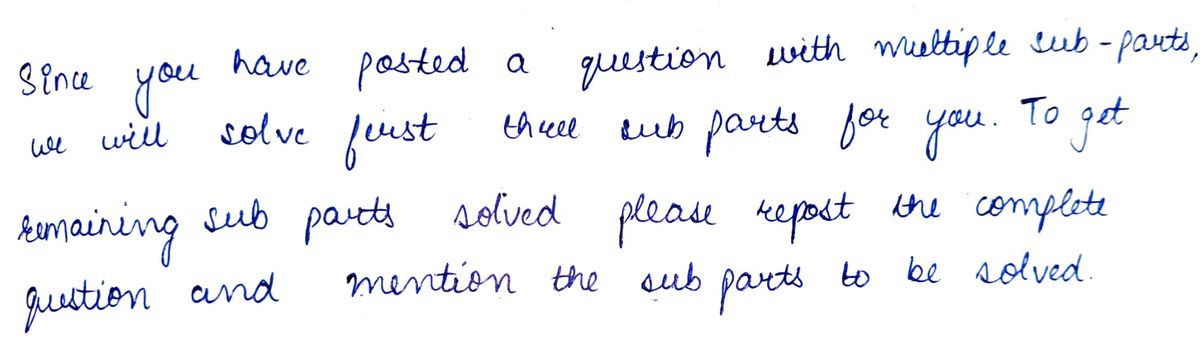 Since you have posted a question with multiple sub-parts,
we will solve first three sub parts for you. To get
remaining sub parts solved please repost the complete
question and mention the sub parts to be solved.